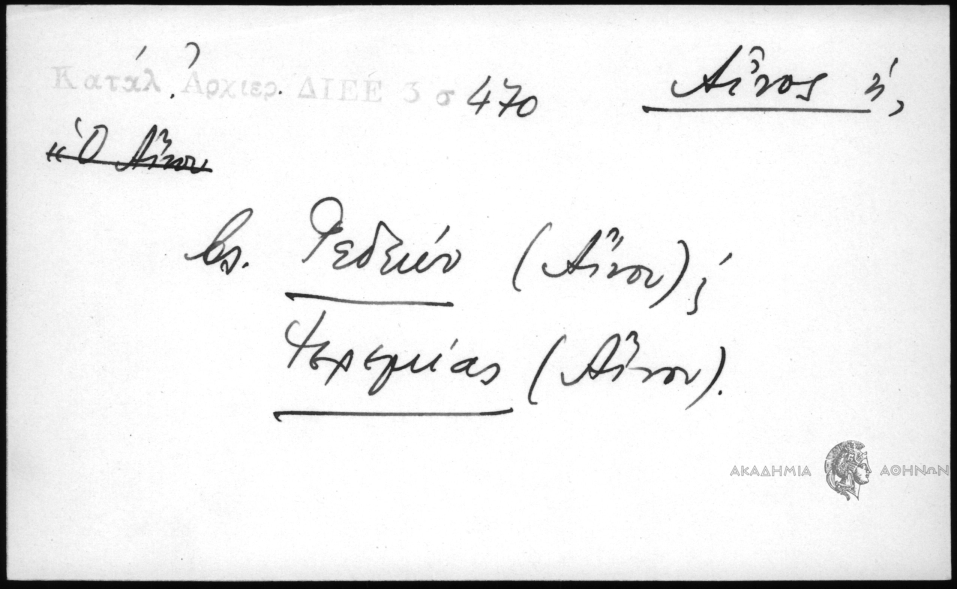 Κατάλ. Ἀρχιερ. ΔΙΕΕ 3 σ 470 Αἶνος ἡ,
«Ὁ Αἴνου
βλ. Γεδεών (Αἴνου);
Ἱερεμίας (Αἴνου).
ΑΚΑΔΗΜΙΑ ΑΘΗΝΩΝ